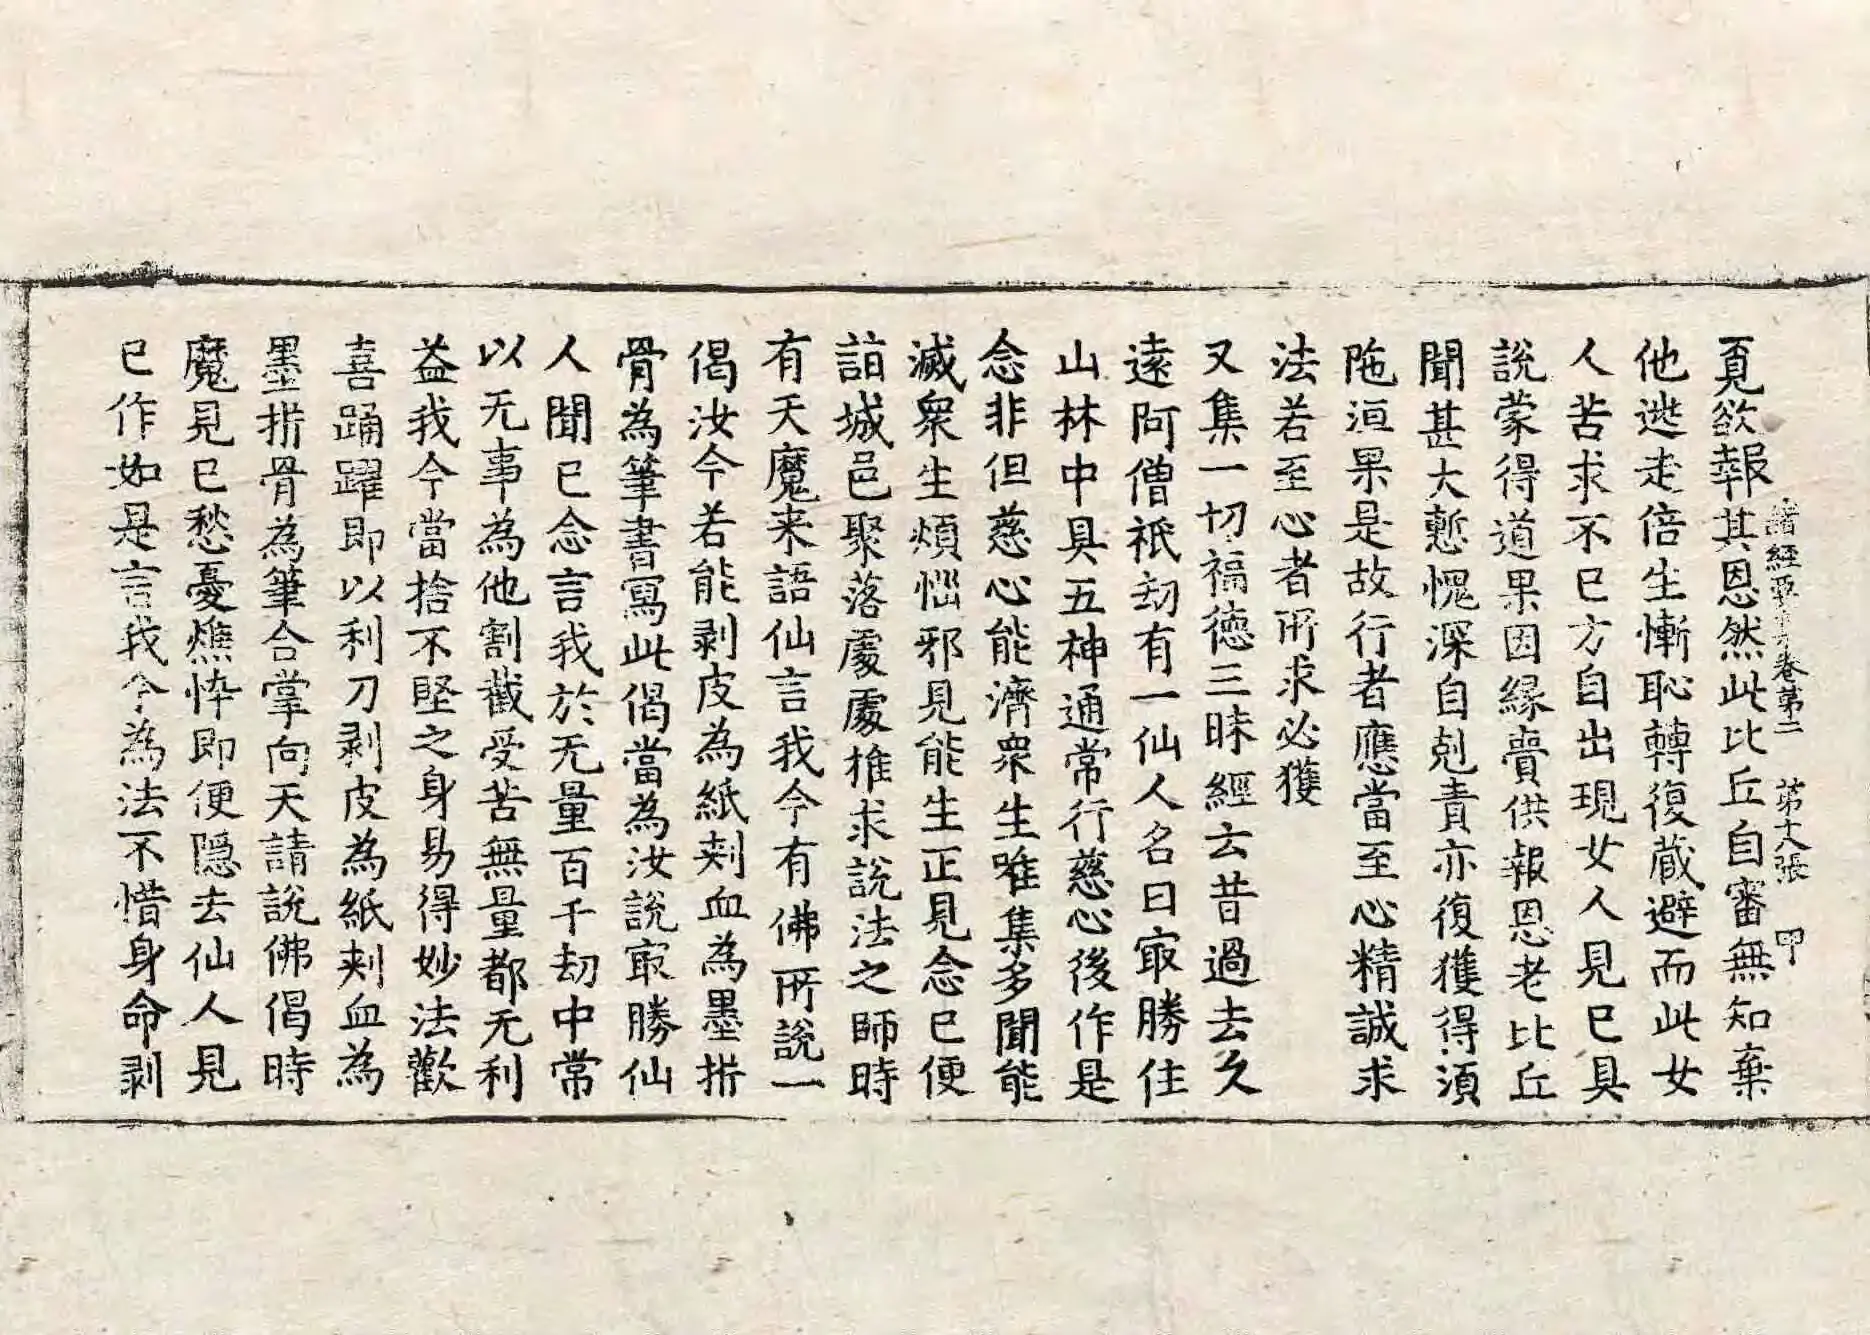 覓欲報其恩然此比丘自審無知棄
諸經要集卷第二 第十八張 甲
他逃走倍生慚恥轉復藏避而此女
人苦求不已方自出現女人見已具
說蒙得道果因緣賷供報恩老比丘
聞甚大慙愧深自剋責亦復獲得湏
陁洹果是故行者應當至心精誠求
法若至心者所求必獲
又集一切福德三昧經云昔過去久
遠阿僧祇劫有一仙人名曰冣勝住
山林中具五神通常行慈心後作是
念非但慈心能濟衆生唯集多聞能
滅衆生煩惱邪見能生正見念已便
詣城邑聚落處處推求說法之師時
有天魔来語仙言我今有佛所說一
偈汝今若能剥皮為紙刾血為墨析
骨為筆書寫此偈當為汝說冣勝仙
人聞已念言我於无量百千劫中常
以无事為他割截受苦無量都无利
益我今當捨不堅之身易得妙法歡
喜踊躍即以利刀剥皮為紙刾血為
墨析骨為筆合掌向天請說佛偈時
魔見已愁憂憔悴即便隱去仙人見
已作如是言我今為法不惜身命剥